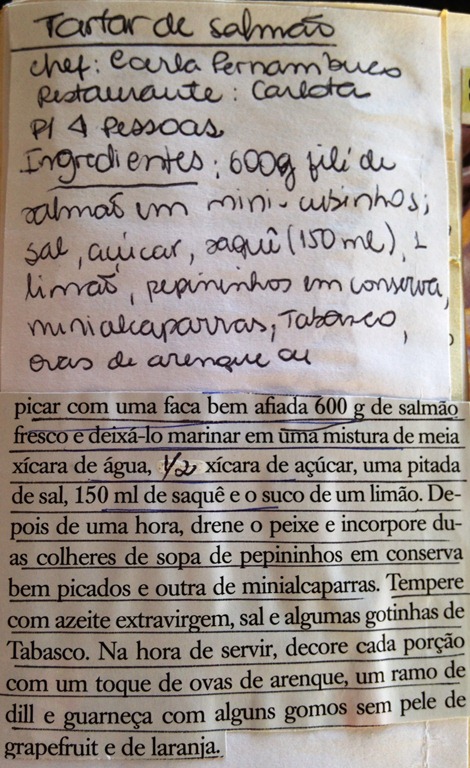 Tartar de salmão
Chef: Carla Pernambuco
Restaurante: Carlota
P/ 4 Pessoas
Ingredientes: 600g filé de
salmão em mini-cubinhos;
sal, açúcar, saquê (150 ml), 1
limão, pepininhos em conserva,
minialcaparras, Tabasco,
ovas de arenque ou
picar com uma faca bem afiada 600 g de salmão
fresco e deixá-lo marinar em uma mistura de meia
xícara de água, 1/2 xícara de açúcar, uma pitada
de sal, 150 ml de saquê e o suco de um limão. De-
pois de uma hora, drene o peixe e incorpore du-
as colheres de sopa de pepininhos em conserva
bem picados e outra de minialcaparras. Tempere
com azeite extravirgem, sal e algumas gotinhas de
Tabasco. Na hora de servir, decore cada porção
com um toque de ovas de arenque, um ramo de
dill e guarneça com alguns gomos sem pele de
grapefruit e de laranja.